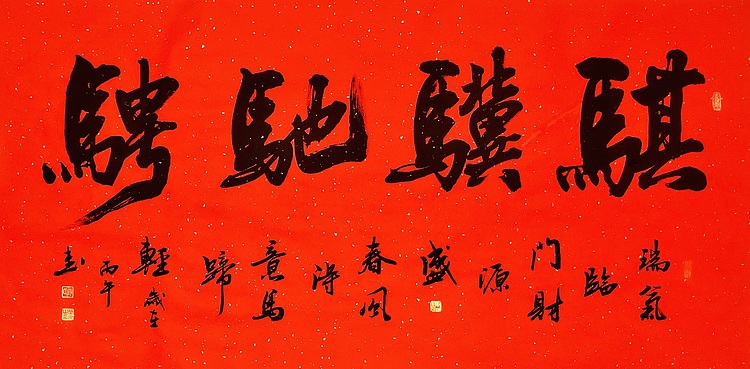 騏驥馳騁
瑞氣
臨
門財
源
盛
春風
得
意馬
蹄
輕歲在
丙午